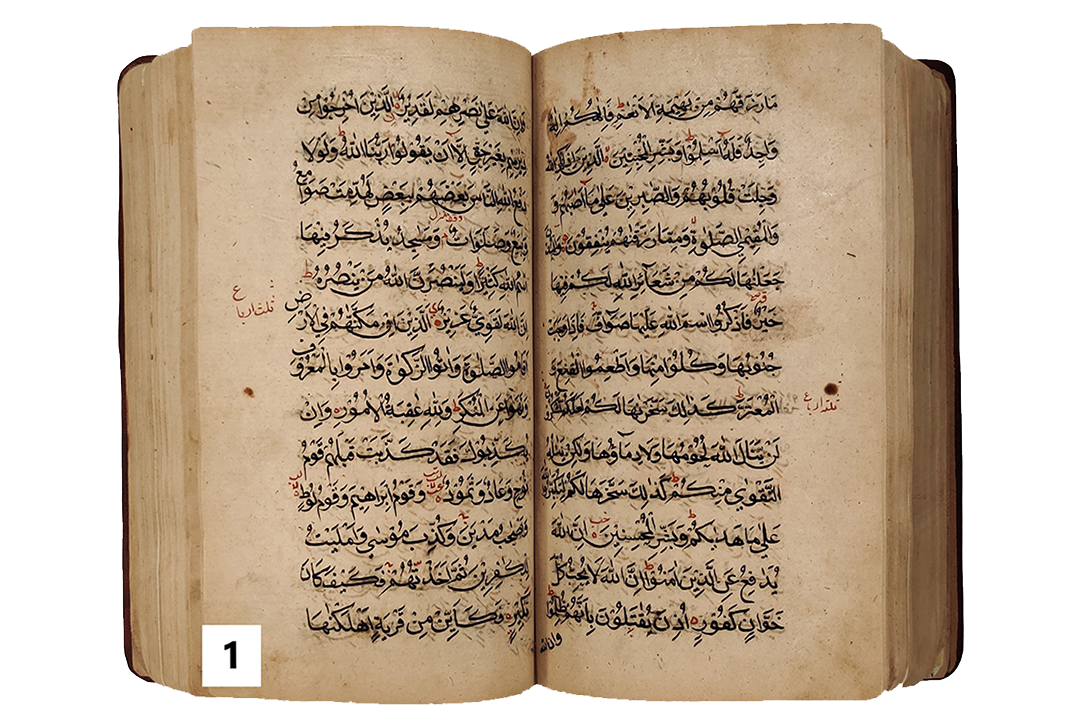 مَا رَزَقَهُمْ مِنْ بَهِيمَةِ الْاَنْعٰمِ فَاِلٰهُكُمْ اِلٰهٌ
وَاحِدٌ فَلَهٗ اَسْلِمُوا وَبَشِّرِ الْمُخْبِتِينَ الَّذِينَ اِذَا ذُكِرَ اللهُ
وَجِلَتْ قُلُوبُهُمْ وَالصّٰبِرِينَ عَلٰى مَا اَصَابَهُمْ وَ
وَالْمُقِيمِي الصَّلٰوةِ وَمِمَّا رَزَقْنٰهُمْ يُنْفِقُونَ وَالْبُدْنَ
جَعَلْنٰهَا لَكُمْ مِنْ شَعَآئِرِ اللهِ لَكُمْ فِيهَا
خَيْرٌ فَاذْكُرُوا اسْمَ اللهِ عَلَيْهَا صَوَآفَّ فَاِذَا وَجَبَتْ
جُنُوبُهَا فَكُلُوا مِنْهَا وَاَطْعِمُوا الْقٰنِعَ وَ
الْمُعْتَرَّ كَذٰلِكَ سَخَّرْنٰهَا لَكُمْ لَعَلَّكُمْ تَشْكُرُونَ
لَنْ يَنَالَ اللهَ لُحُومُهَا وَلَا دِمَآؤُهَا وَلٰكِنْ يَنَالُهُ
التَّقْوٰى مِنْكُمْ كَذٰلِكَ سَخَّرَهَا لَكُمْ لِتُكَبِّرُوا اللهَ
عَلٰى مَا هَدٰىكُمْ وَبَشِّرِ الْمُحْسِنِينَ اِنَّ اللهَ
يُدٰفِعُ عَنِ الَّذِينَ اٰمَنُوا اِنَّ اللهَ لَا يُحِبُّ كُلَّ
خَوَّانٍ كَفُورٍ اُذِنَ يُقٰتَلُونَ بِاَنَّهُمْ ظُلِمُوا
وان الله
ثلثة ارباع
وَاِنَّ اللهَ عَلٰى نَصْرِهِمْ لَقَدِيرٌ الَّذِينَ اُخْرِجُوا مِنْ
دِيَارِهِمْ بِغَيْرِ حَقٍّ اِلَّآ اَنْ يَقُولُوا رَبُّنَا اللهُ وَلَوْلَا
دَفْعُ اللهِ النَّاسَ بَعْضَهُمْ بِبَعْضٍ لَهُدِّمَتْ صَوَامِعُ
وَبِيَعٌ وَصَلَوَاتٌ وَمَسٰجِدُ يُذْكَرُ فِيهَا
اسْمُ اللهِ كَثِيرًا وَلَيَنْصُرَنَّ اللهُ مَنْ يَنْصُرُهٗ
اِنَّ اللهَ لَقَوِيٌّ عَزِيزٌ الَّذِينَ اِنْ مَكَّنّٰهُمْ فِي الْاَرْضِ
اَقَامُوا الصَّلٰوةَ وَاٰتَوُا الزَّكٰوةَ وَاَمَرُوا بِالْمَعْرُوفِ
وَنَهَوْا عَنِ الْمُنْكَرِ وَلِلّٰهِ عَاقِبَةُ الْاُمُورِ وَاِنْ
يُكَذِّبُوكَ فَقَدْ كَذَّبَتْ قَبْلَهُمْ قَوْمُ
نُوحٍ وَعَادٌ وَثَمُودُ وَقَوْمُ اِبْرٰهِيمَ وَقَوْمُ لُوطٍ
وَاَصْحٰبُ مَدْيَنَ وَكُذِّبَ مُوسٰى فَاَمْلَيْتُ
لِلْكٰفِرِينَ ثُمَّ اَخَذْتُهُمْ فَكَيْفَ كَانَ
نَكِيرِ فَكَاَيِّنْ مِنْ قَرْيَةٍ اَهْلَكْنٰهَا
ثلثة ارباع
1